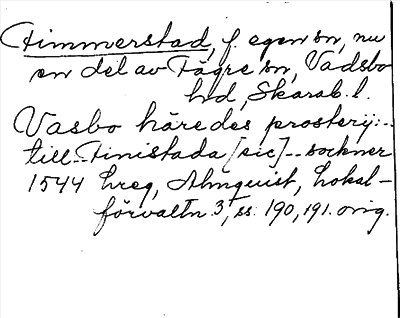 Timmerstad, f. egen sn, nu
en del av Fägre sn, Vadsbo
hd, Skarab. l.
Vasbo häredes prosterij: --
till -- Tinistada [sic] -- sockner
1544 hreg, Almquist, Lokal-
förvaltn. 3, ss. 190, 191. orig.